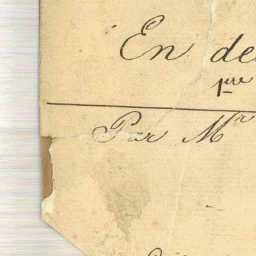 En de
pre
Par Mr